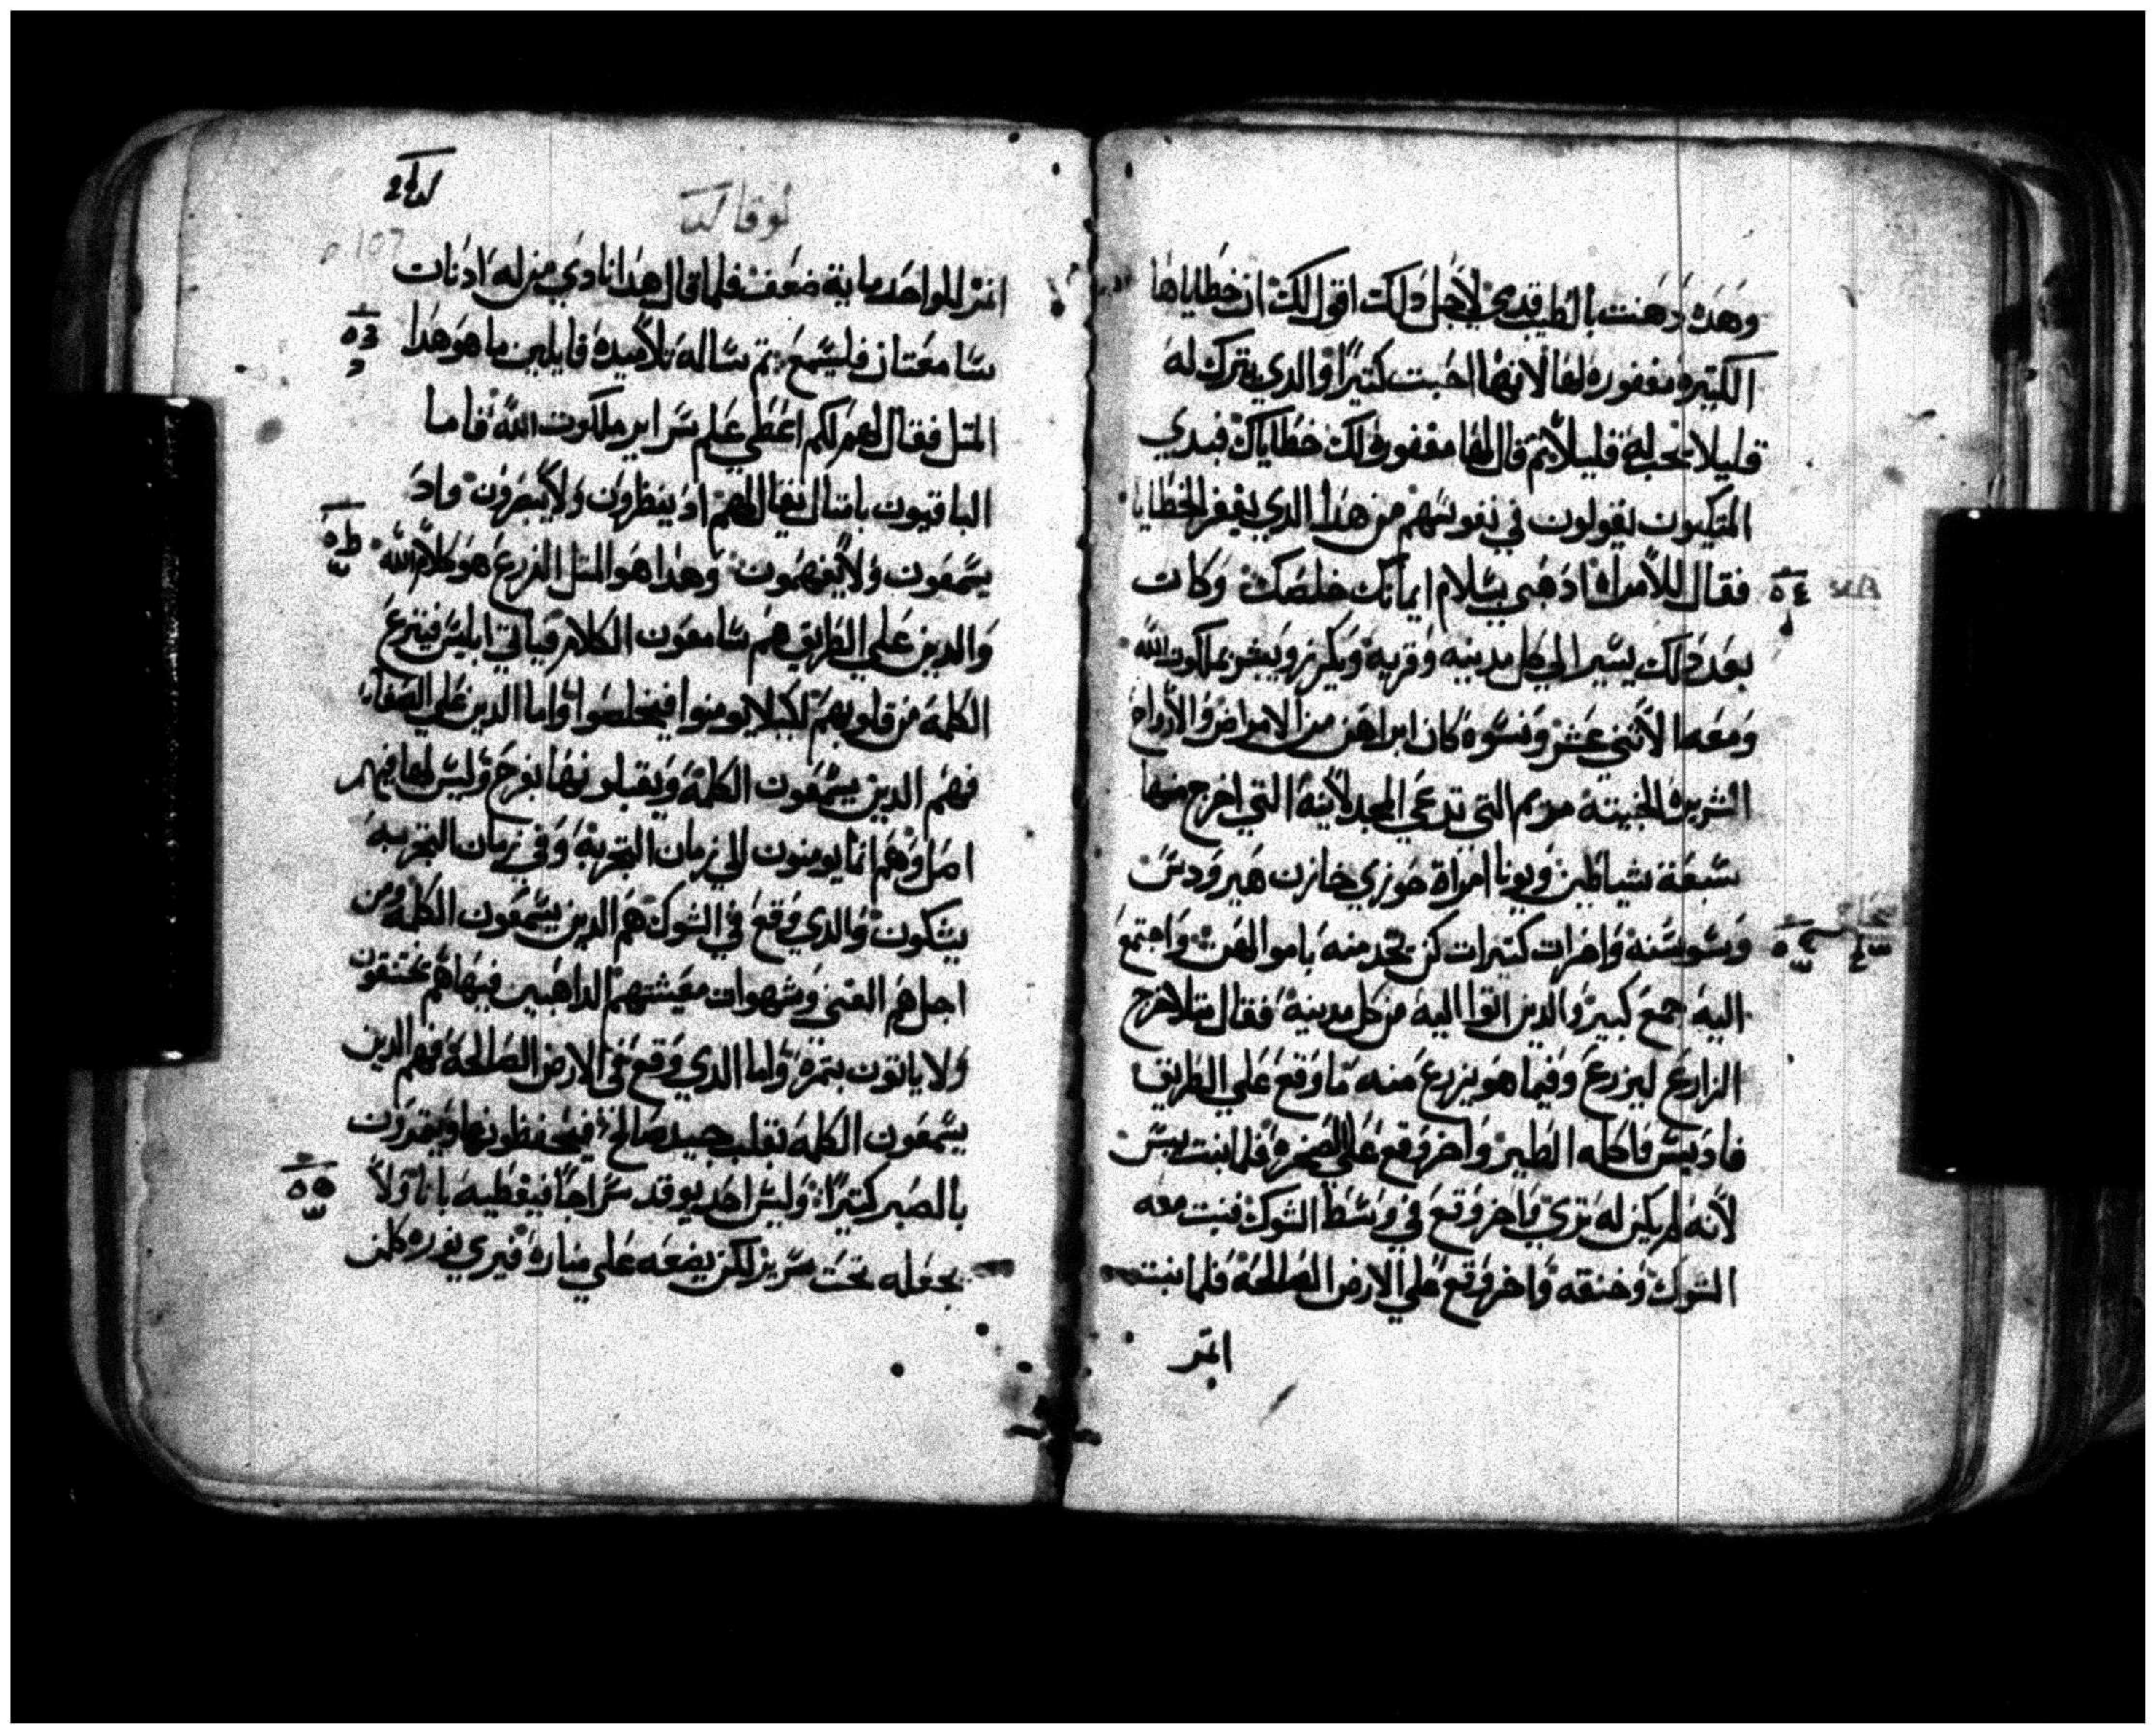 وهده دهنت بالطيب قدمي لاجل دلك اقول لك ان خطاياها
الكتيره مغفوره لها لانها احبت كتيرا والدي يترك له
قليلا يحب قليلا تم قال لها مغفوره لك خطاياك فبدي
المتكيون يقولون في نفوسهم من هدا الدي يغفر الخطايا
فقال للامراه ادهبي بسلام ايمانك خلصك وكان
بعد دلك يسير الي كل مدينه وقريه ويكرز ويبشر بملكوت الله
ومعه الاثني عشر ونسوه كان ابراهن من الامراض والارواح
الشريره الخبيته مريم التي تدعي المجدلانيه التي اخرج منها
سبعة شياطين ويونا امراة خوزي خازن هيرودس
وسوسنه واخرات كتيرات كن تخدمنه باموالهن واجتمع
اليه جمع كبير والدين اتوا اليه من كل مدينه فقال متلا خرج
الزارع ليزرع وفيما هو يزرع منه ما وقع علي الطريق
فاديس فاكله الطير واخر وقع علي الصخره فلما نبت يبس
لانه لم يكن له تري واخر وقع في وسط الشوك فنبت معه
الشوك وخنقه واخر وقع علي الارض الصالحة فلما نبت
اتمر
لوقا
اتمر للواحد ماية ضعف فلما قال هدا نادي من له ادنان
سامعتان فليسمع تم ساله تلاميده قايلين ما هو هدا
المتل فقال لهم لكم اعطي علم سراير ملكوت الله فاما
الباقيون بامتال يقال لهم اد ينظرون ولا يبصرون واد
يسمعون ولا يفهمون وهدا هو المتل الزرع هو كلام الله
والدين علي الطريق هم سامعون الكلام فياتي ابليس فينزع
الكلمه من قلوبهم لكيلا يومنوا فيخلصوا واما الدين علي الصفاه
فهم الدين يسمعون الكلمة ويقبلونها بفرح وليس لها فيهم
اصل وهم انما يومنون الي زمان التجربة وفي زمان التجربه
يشكون والدي وقع في الشوك هم الدين يسمعون الكلمه ومن
اجل هم الغني وشهوات معيشتهم الداهبين فيها هم يختنقون
ولا ياتون بتمره واما الدي وقع في الارض الصالحة فهم الدين
يسمعون الكلمه بقلب جيد صالح فيحفظونها ويتمرون
بالصبر كتيرا وليس احد يوقد سراجا فيغطيه بانا ولا
يجعله تحت سرير لكن يضعه علي مناره فيري نوره كلمن